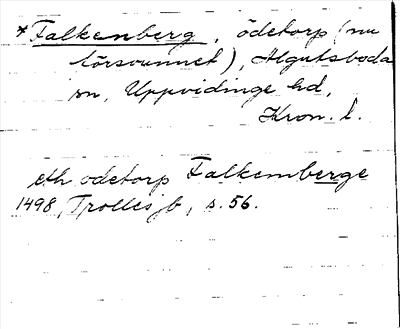 * Falkenberg, ödetorp (nu
försvunnet), Algutsboda
sn, Uppvidinge hd,
Kron. l.
eth ödetorp Falkemberge
1498, Trolles jb, s. 56.